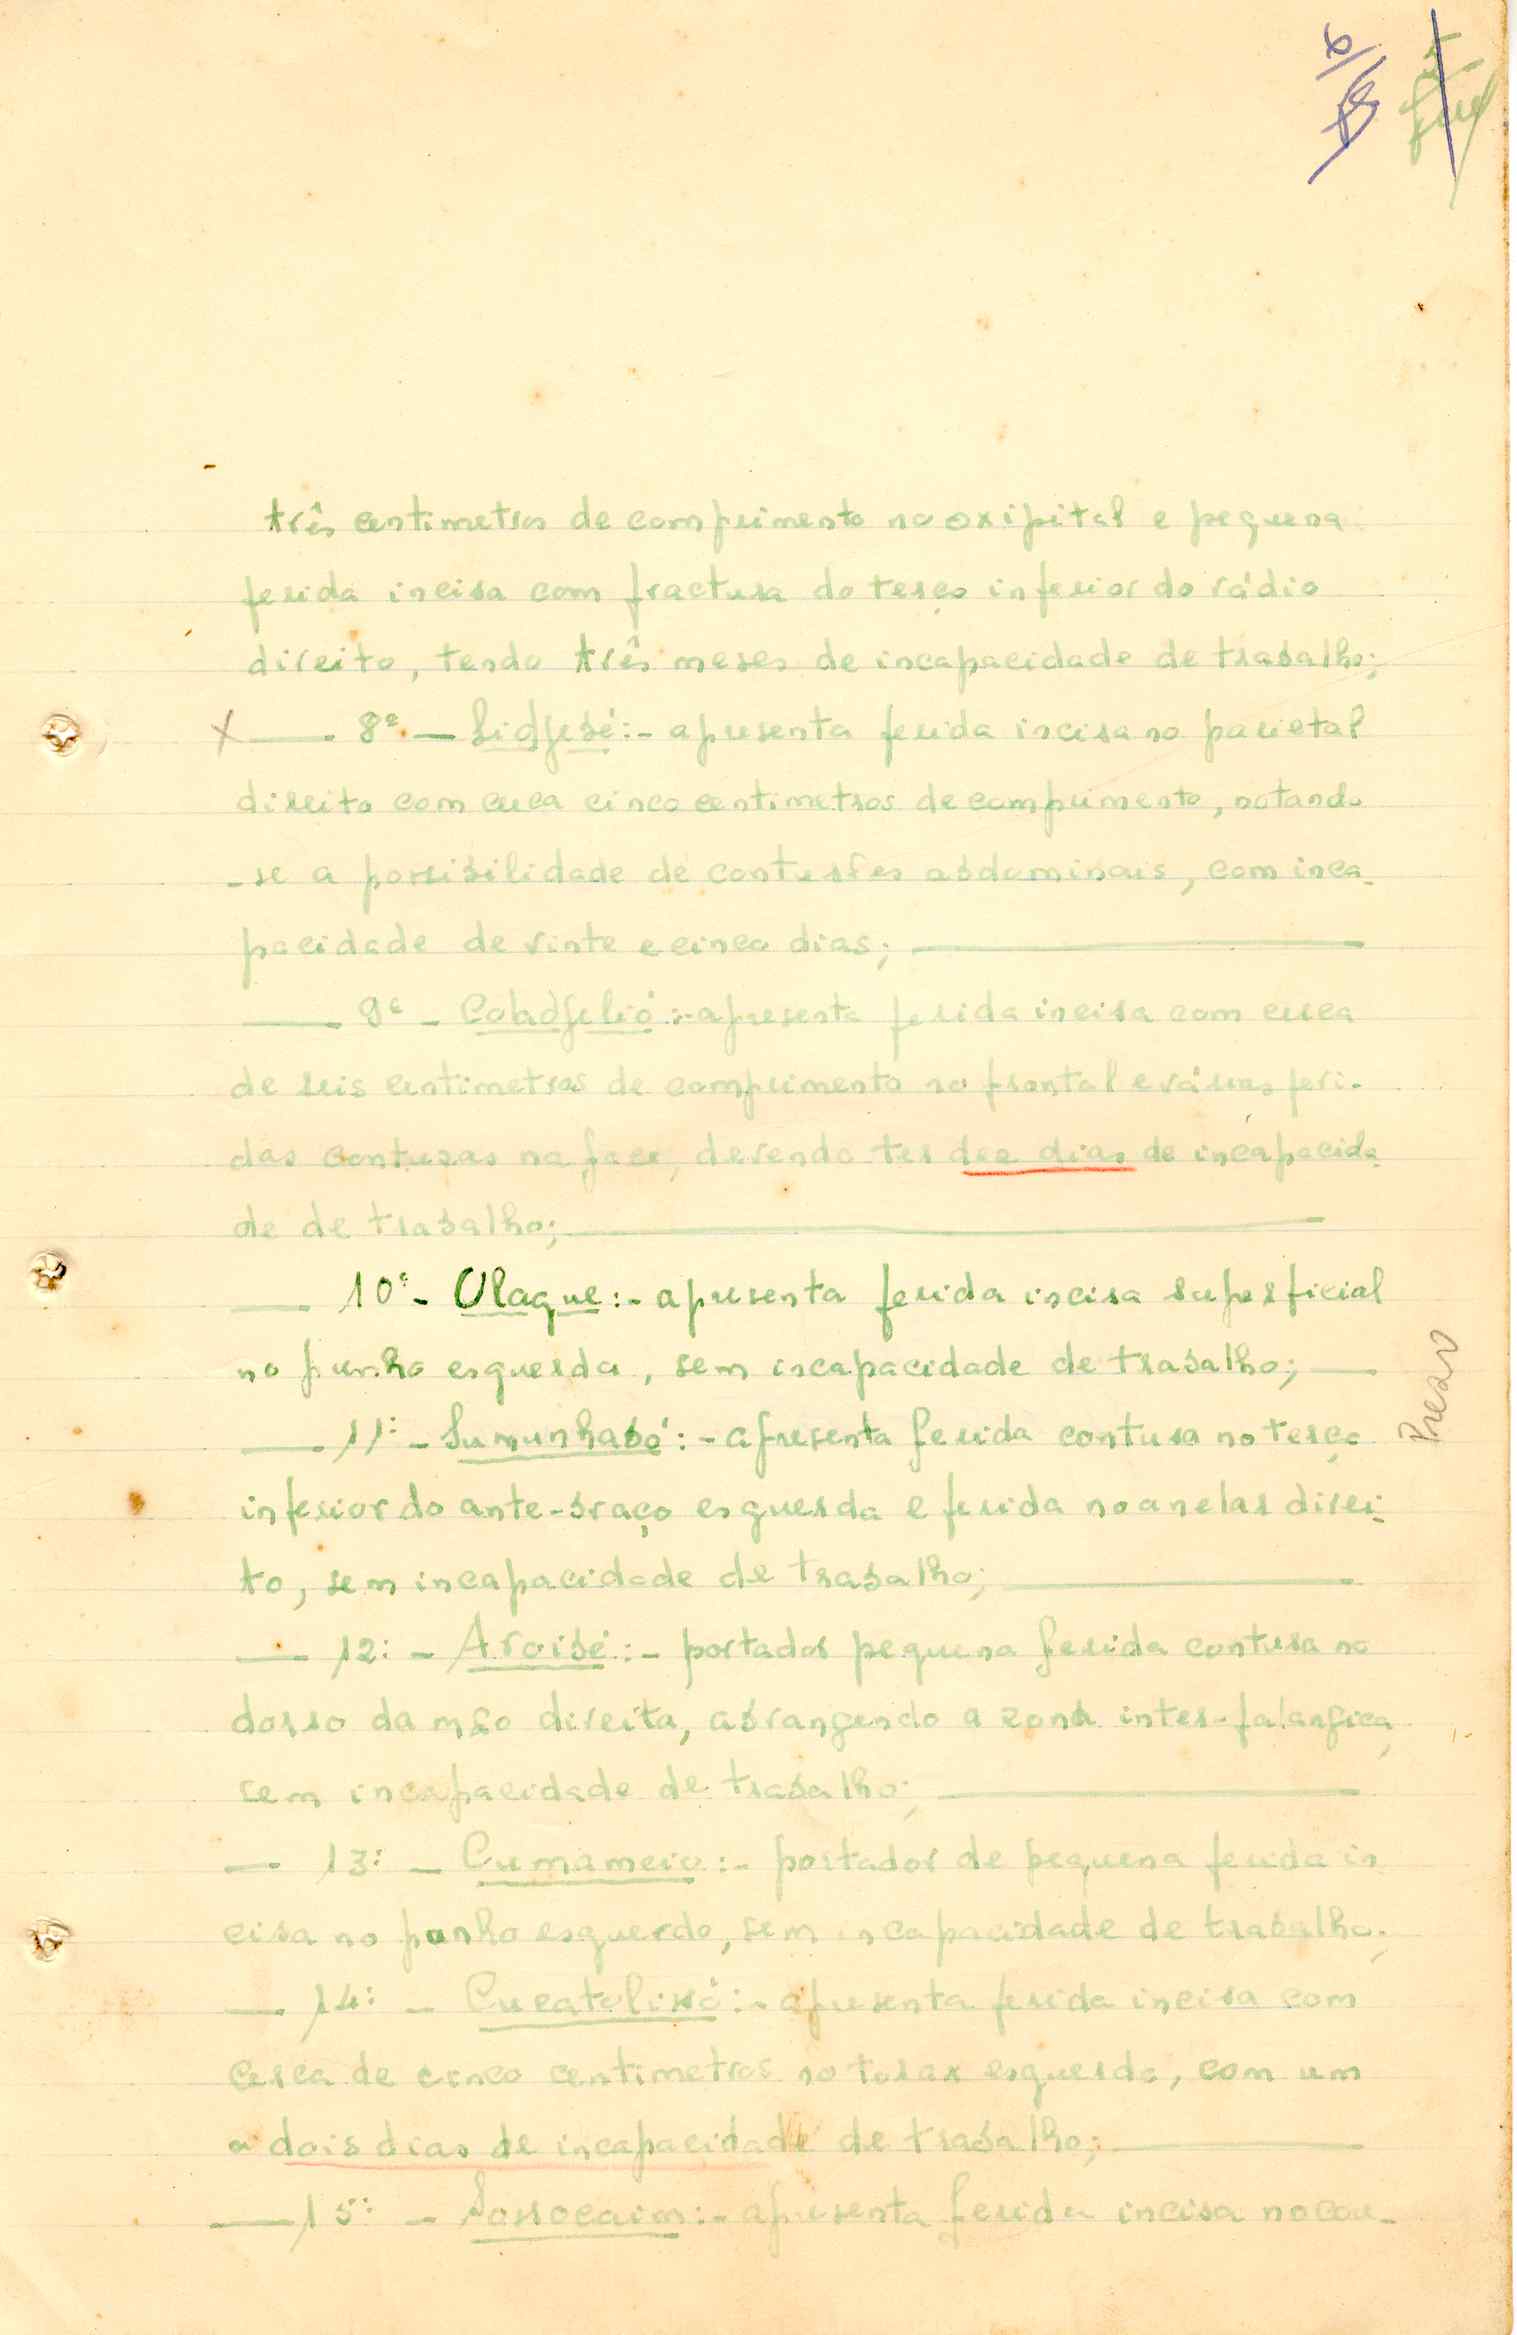 três centimetros de comprimento no oxipital e pequena
ferida incisa com fractura do terço inferior do rádio
direito, tendo três meses de incapacidade de trabalho;
8º — Lidjubé:- apresenta ferida incisa no parietal
direito com cerca cinco centimetros de comprimento, notando
-se a possibilidade de contusões abdominais, com inca-
pacidade de vinte e cinco dias;
9º - Cobadjelió:- apresenta ferida incisa com cerca
de seis centimetros de comprimento no frontal e várias feri-
das contusas na face, devendo ter dez dias de incapacida
de de trabalho;
10º - Olaque:- apresenta ferida incisa superficial
no punho esquerdo, sem incapacidade de trabalho;
11º - Sumunhabó:- apresenta ferida contusa no terço
inferior do ante-braço esquerdo e ferida no anelar direi-
to, sem incapacidade de trabalho;
12º - Aroibé:- portador pequena ferida contusa no
dorso da mão direita, abrangendo a zona inter-falangica,
sem incapacidade de trabalho;
13º - Cumameio:- portador de pequena ferida in
cisa no punho esquerdo, sem incapacidade de trabalho;
14º - apresenta ferida incisa com
cerca de cinco centimetros no torax esquerdo, com um
a dois dias de incapacidade de trabalho;
15º - Sossocaim:- apresenta ferida incisa no cou-